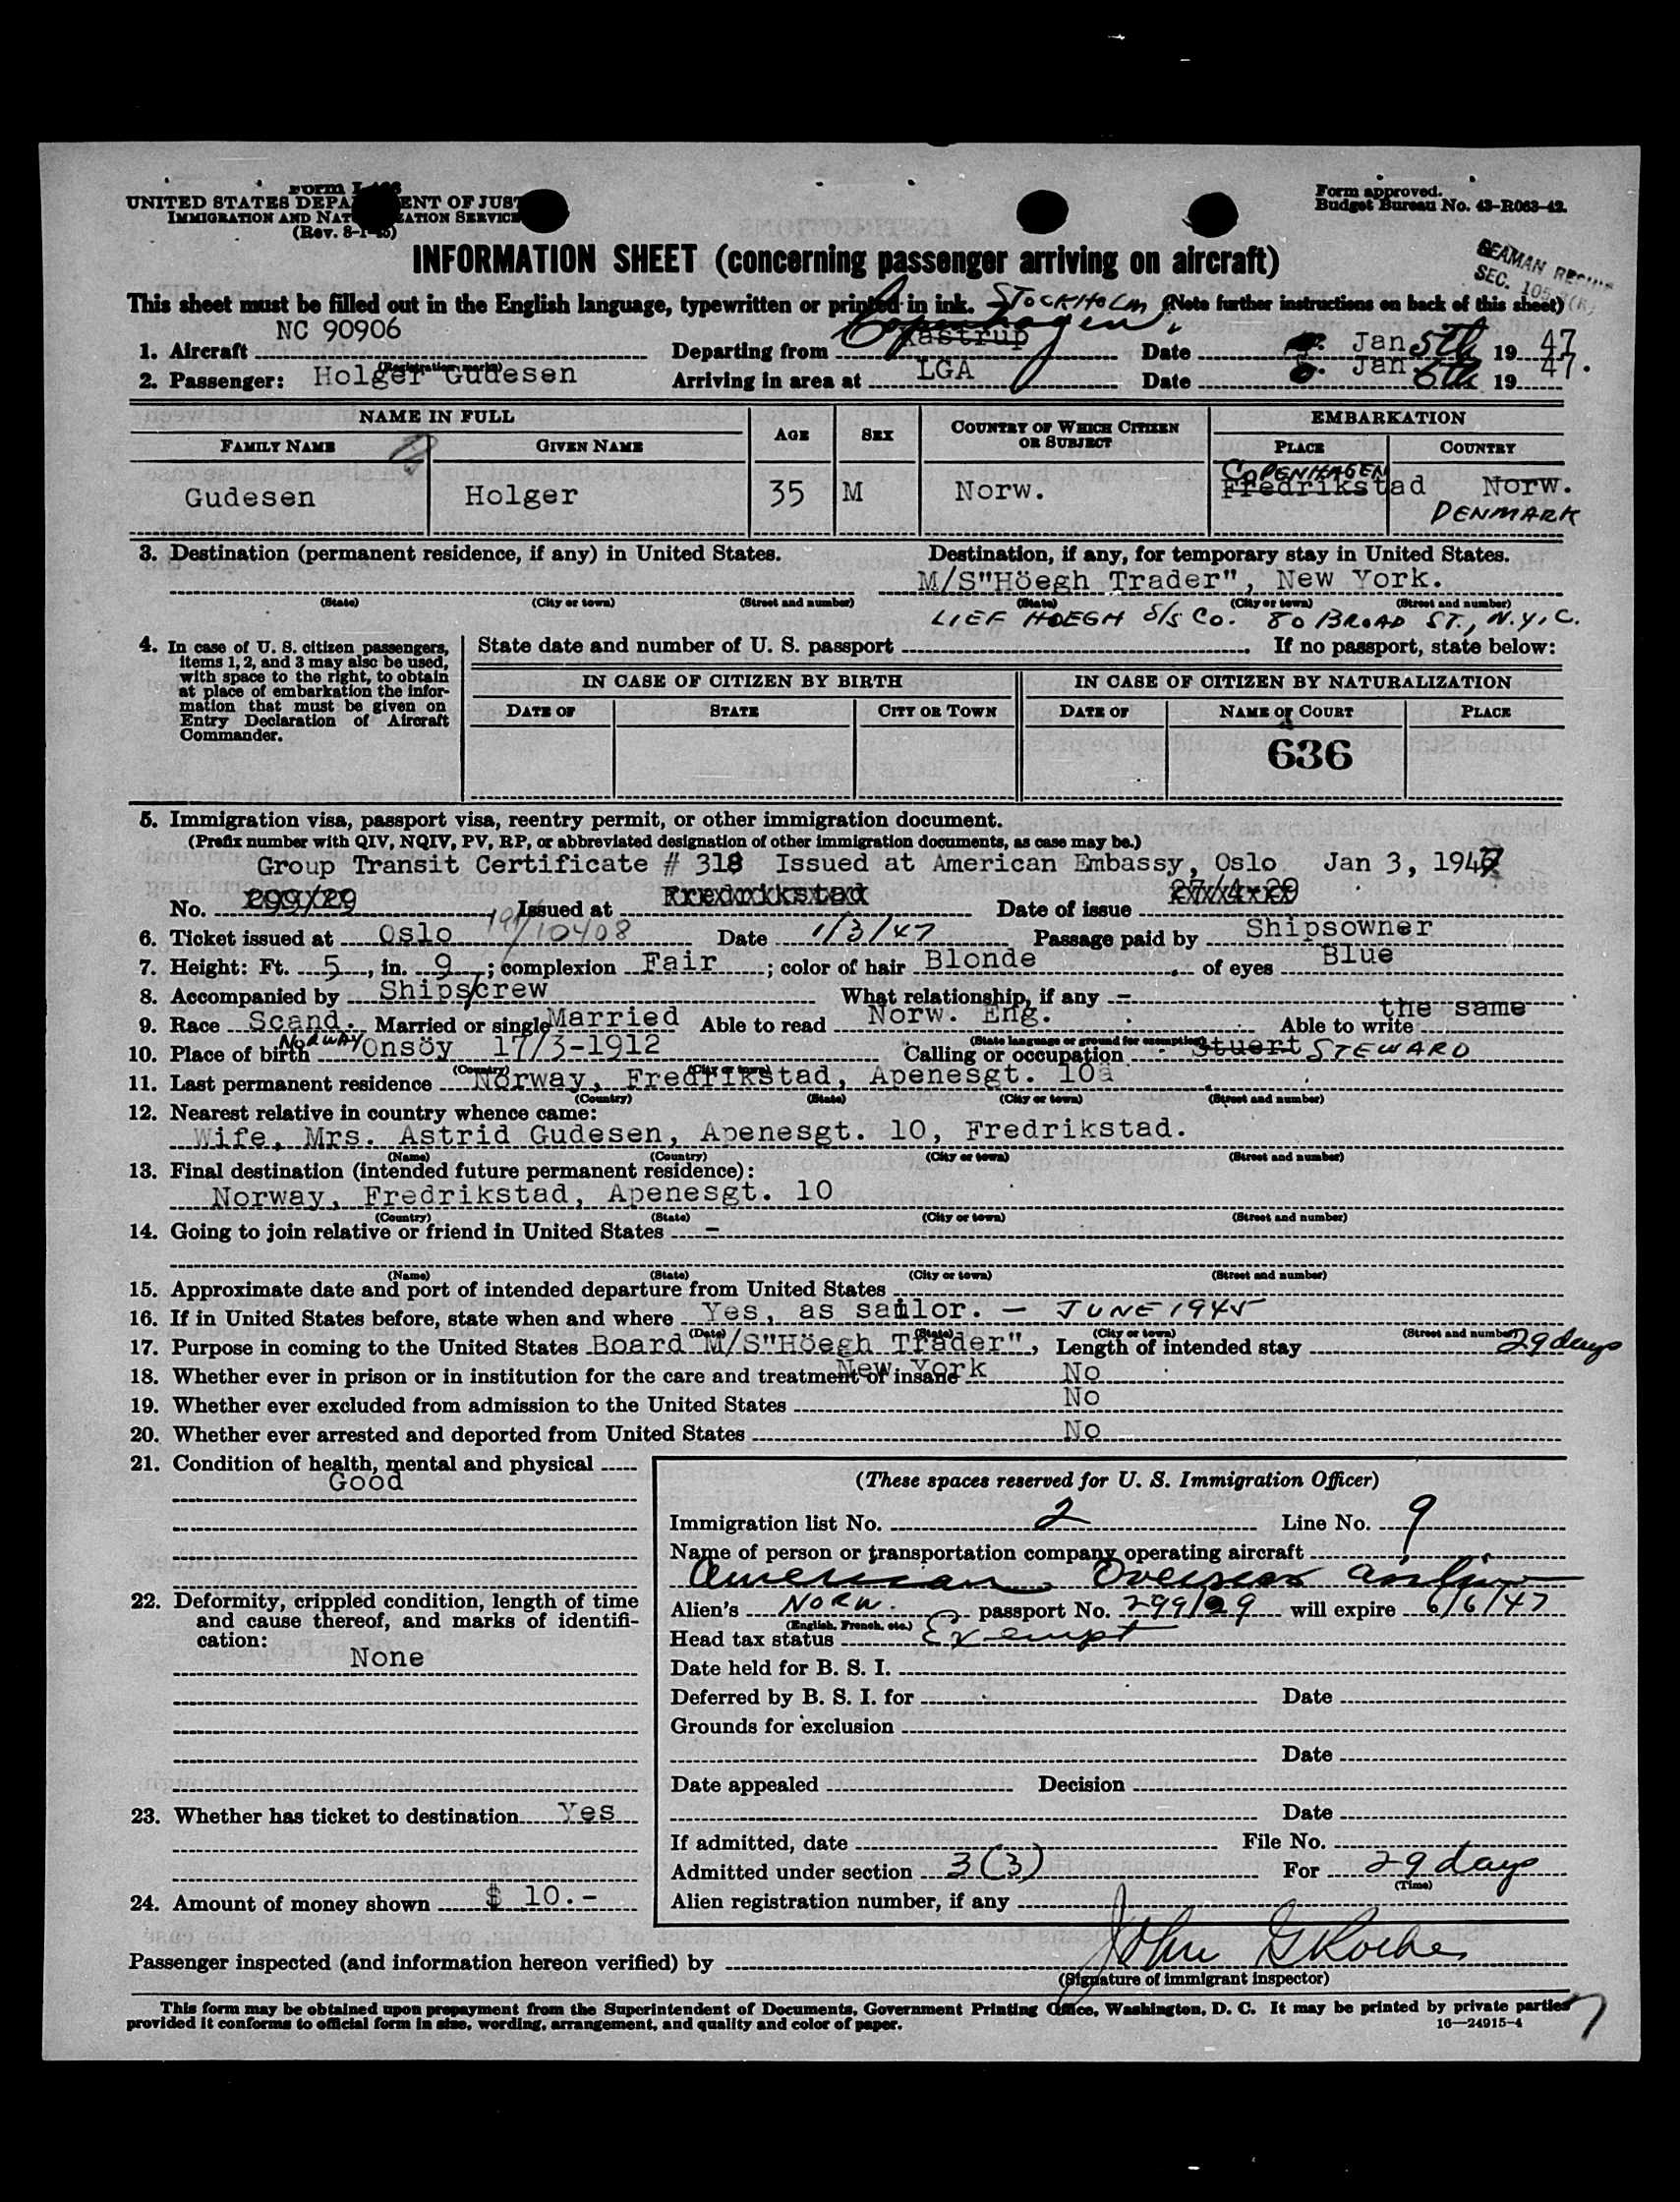 UNITED STATES DEPA ENT OF JUST
IMMIGRATION AND NAT ZATION SERVICE
Form approved.
Budget Bureau No. 43-R063-42.
INFORMATION SHEET (concerning passenger arriving on aircraft)
SEAMAN
SEC.
This sheet must be filled out in the English language, typewritten or printed in ink. STOCKHOLM (Note further instructions on back of this sheet)
Copenhagen
1. Aircraft NC 90906 Departing from Kastrup Date Jan 5th 1947
(Registration marks)
2. Passenger: Holger Gudesen Arriving in area at LGA Date Jan. 6th 1947.
NAME IN FULL AGE SEX COUNTRY OF WHICH CITIZEN OR SUBJECT EMBARKATION
FAMILY NAME GIVEN NAME PLACE COUNTRY
COPENHAGEN
Gudesen Holger 35 M Norw. Fredrikstad Norw.
DENMARK
3. Destination (permanent residence, if any) in United States. Destination, if any, for temporary stay in United States.
M/S"Höegh Trader", New York.
(State) (City or town) (Street and number) (State) (City or town) (Street and number)
LIEF HOEGH S/S Co. 80 BROAD ST., N.Y.C.
4. In case of U. S. citizen passengers, items 1, 2, and 3 may also be used, with space to the right, to obtain at place of embarkation the information that must be given on Entry Declaration of Aircraft Commander.
State date and number of U. S. passport If no passport, state below:
IN CASE OF CITIZEN BY BIRTH IN CASE OF CITIZEN BY NATURALIZATION
DATE OF STATE CITY OR TOWN DATE OF NAME OF COURT PLACE
636
5. Immigration visa, passport visa, reentry permit, or other immigration document.
(Prefix number with QIV, NQIV, PV, RP, or abbreviated designation of other immigration documents, as case may be.)
Group Transit Certificate # 318 Issued at American Embassy, Oslo Jan 3, 1947
No. 299/29 Issued at Fredrikstad Date of issue 27/4-29
6. Ticket issued at Oslo 191/10408 Date 1/3/47 Passage paid by Shipsowner
7. Height: Ft. 5, in. 9; complexion Fair; color of hair Blonde of eyes Blue
8. Accompanied by Shipscrew What relationship, if any -
9. Race Scand. Married or single Married Able to read Norw. Eng. Able to write the same
(State language or ground for exemption)
10. Place of birth NORWAY Onsöy 17/3-1912 Calling or occupation Stuert STEWARD
(Country) (City or town)
11. Last permanent residence Norway, Fredrikstad, Apenesgt. 10a
(Country) (State) (City or town) (Street and number)
12. Nearest relative in country whence came:
Wife, Mrs. Astrid Gudesen, Apenesgt. 10, Fredrikstad.
(Name) (Country) (City or town) (Street and number)
13. Final destination (intended future permanent residence):
Norway, Fredrikstad, Apenesgt. 10
(Country) (State) (City or town) (Street and number)
14. Going to join relative or friend in United States -
(Name) (State) (City or town) (Street and number)
15. Approximate date and port of intended departure from United States
16. If in United States before, state when and where Yes, as sailor. - JUNE 1945
(Date) (State) (City or town) (Street and number)
17. Purpose in coming to the United States Board M/S"Höegh Trader", Length of intended stay 29 days
New York
18. Whether ever in prison or in institution for the care and treatment of insane No
19. Whether ever excluded from admission to the United States No
20. Whether ever arrested and deported from United States No
21. Condition of health, mental and physical
Good
22. Deformity, crippled condition, length of time and cause thereof, and marks of identification:
None
23. Whether has ticket to destination Yes
24. Amount of money shown $ 10.-
(These spaces reserved for U. S. Immigration Officer)
Immigration list No. 2 Line No. 9
Name of person or transportation company operating aircraft
American Overseas Airlines
Alien's Norw. passport No. 299/29 will expire 6/6/47
(English, French, etc.)
Head tax status Exempt
Date held for B. S. I.
Deferred by B. S. I. for Date
Grounds for exclusion
Date
Date appealed Decision
Date
If admitted, date File No.
Admitted under section 3(3) For 29 days
(Time)
Alien registration number, if any
Passenger inspected (and information hereon verified) by John G Roche
(Signature of immigrant inspector)
This form may be obtained upon prepayment from the Superintendent of Documents, Government Printing Office, Washington, D. C. It may be printed by private parties
provided it conforms to official form in size, wording, arrangement, and quality and color of paper. 16—24915-4